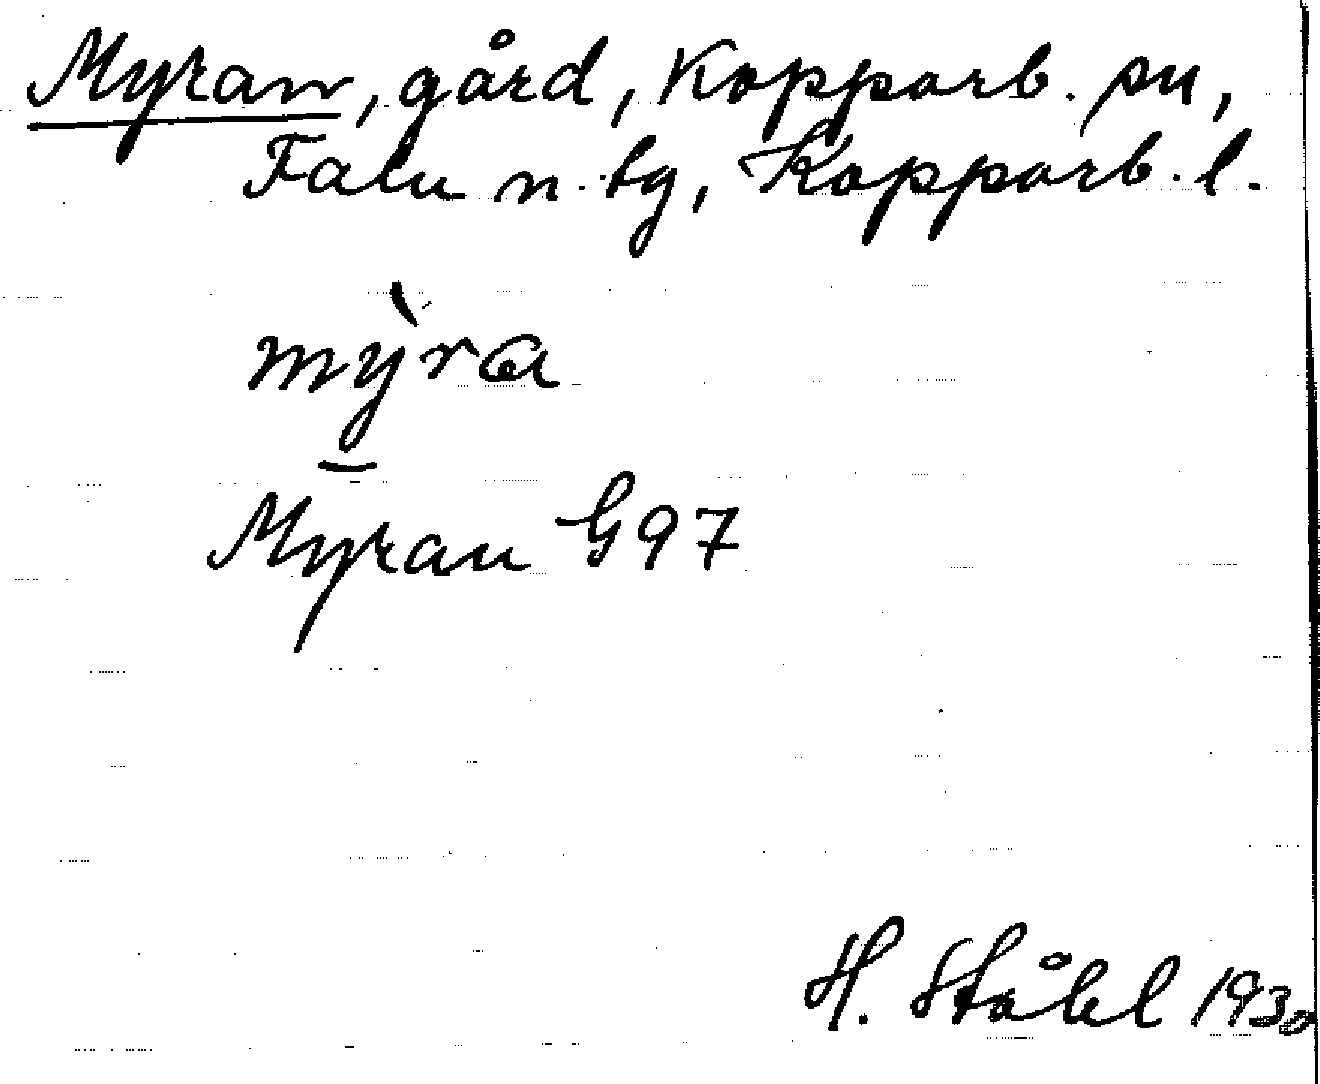 Myran, gård, Kopparb. sn,
Falu n. tg, Kopparb. l.
mỳra
Myran G97
H. Ståhl 1930